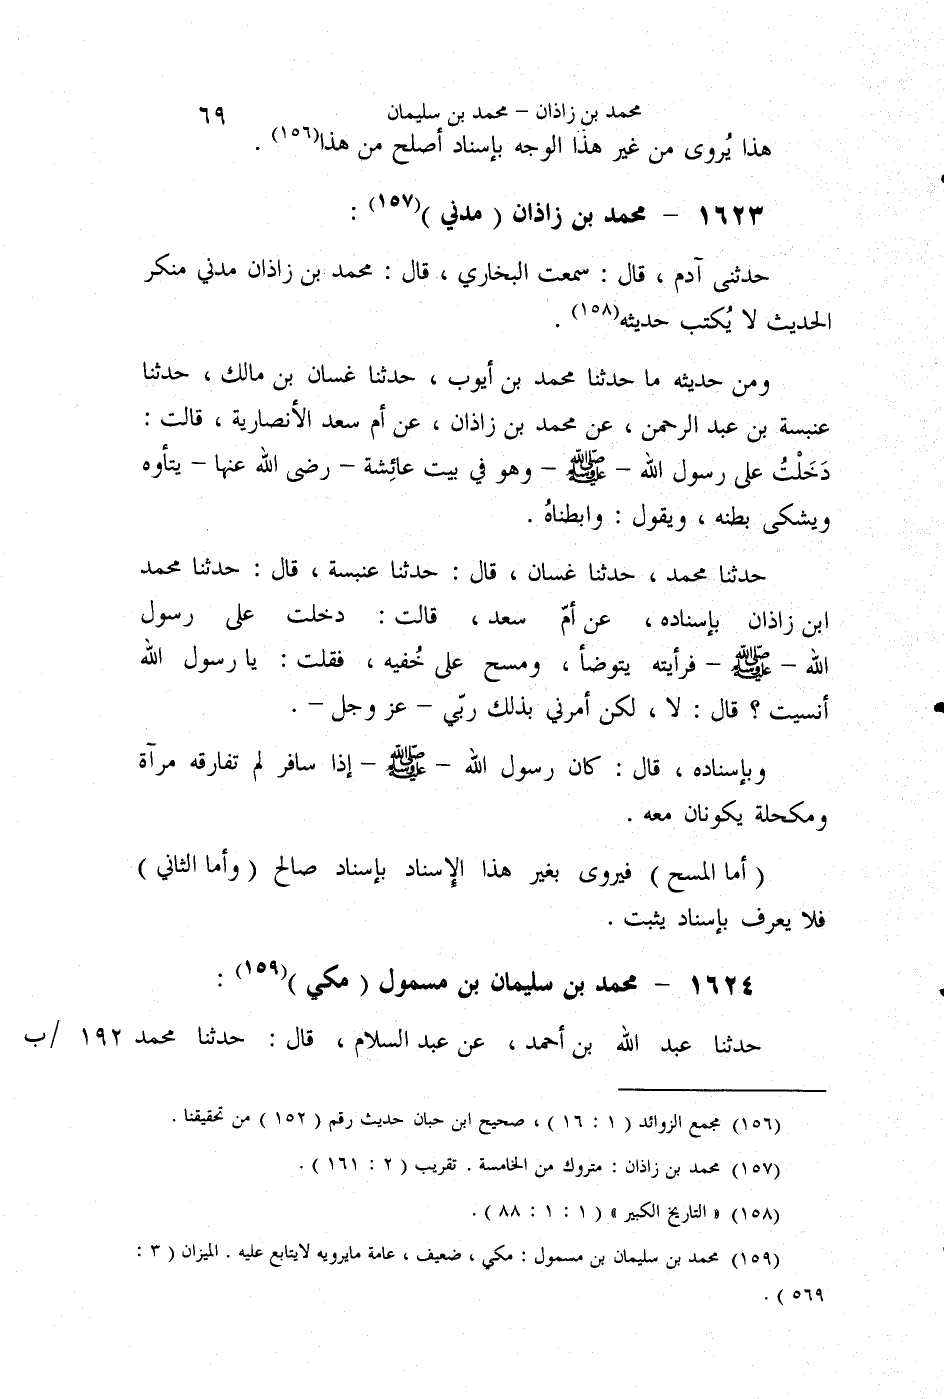 محمد بن زاذان – محمد بن سليمان ٦٩
هذا يُروى من غير هذا الوجه بإسناد أصلح من هذا(١٥٦) .
١٦٢٣ – محمد بن زاذان ( مدني )(١٥٧) :
حدثنى آدم ، قال : سمعت البخاري ، قال : محمد بن زاذان مدني منكر
الحديث لا يُكتب حديثه(١٥٨) .
ومن حديثه ما حدثنا محمد بن أيوب ، حدثنا غسان بن مالك ، حدثنا
عنبسة بن عبد الرحمن ، عن محمد بن زاذان ، عن أم سعد الأنصارية ، قالت :
دَخَلْتُ على رسول الله – ﷺ – وهو في بيت عائِشة – رضى الله عنها – يتأوه
ويشكى بطنه ، ويقول : وابطناهُ .
حدثنا محمد ، حدثنا غسان ، قال : حدثنا عنبسة ، قال : حدثنا محمد
ابن زاذان بإسناده ، عن أمّ سعد ، قالت : دخلت على رسول
الله – ﷺ – فرأيته يتوضأ ، ومسح على خُفيه ، فقلت : يا رسول الله
أنسيت ؟ قال : لا ، لكن أمرني بذلك ربّي – عز وجل – .
وبإسناده ، قال : كان رسول الله – ﷺ – إذا سافر لم تفارقه مرآة
ومكحلة يكونان معه .
( أما المسح ) فيروى بغير هذا الإسناد بإسناد صالح ( وأما الثاني )
فلا يعرف بإسناد يثبت .
١٦٢٤ – محمد بن سليمان بن مسمول ( مكي )(١٥٩) :
حدثنا عبد الله بن أحمد ، عن عبد السلام ، قال : حدثنا محمد ١٩٢ /ب
(١٥٦) مجمع الزوائد ( ١ : ١٦ ) ، صحيح ابن حبان حديث رقم ( ١٥٢ ) من تحقيقنا .
(١٥٧) محمد بن زاذان : متروك من الخامسة . تقريب ( ٢ : ١٦١ ) .
(١٥٨) « التاريخ الكبير » ( ١ : ١ : ٨٨ ) .
(١٥٩) محمد بن سليمان بن مسمول : مكي ، ضعيف ، عامة مايرويه لايتابع عليه . الميزان ( ٣ :
٥٦٩ ) .